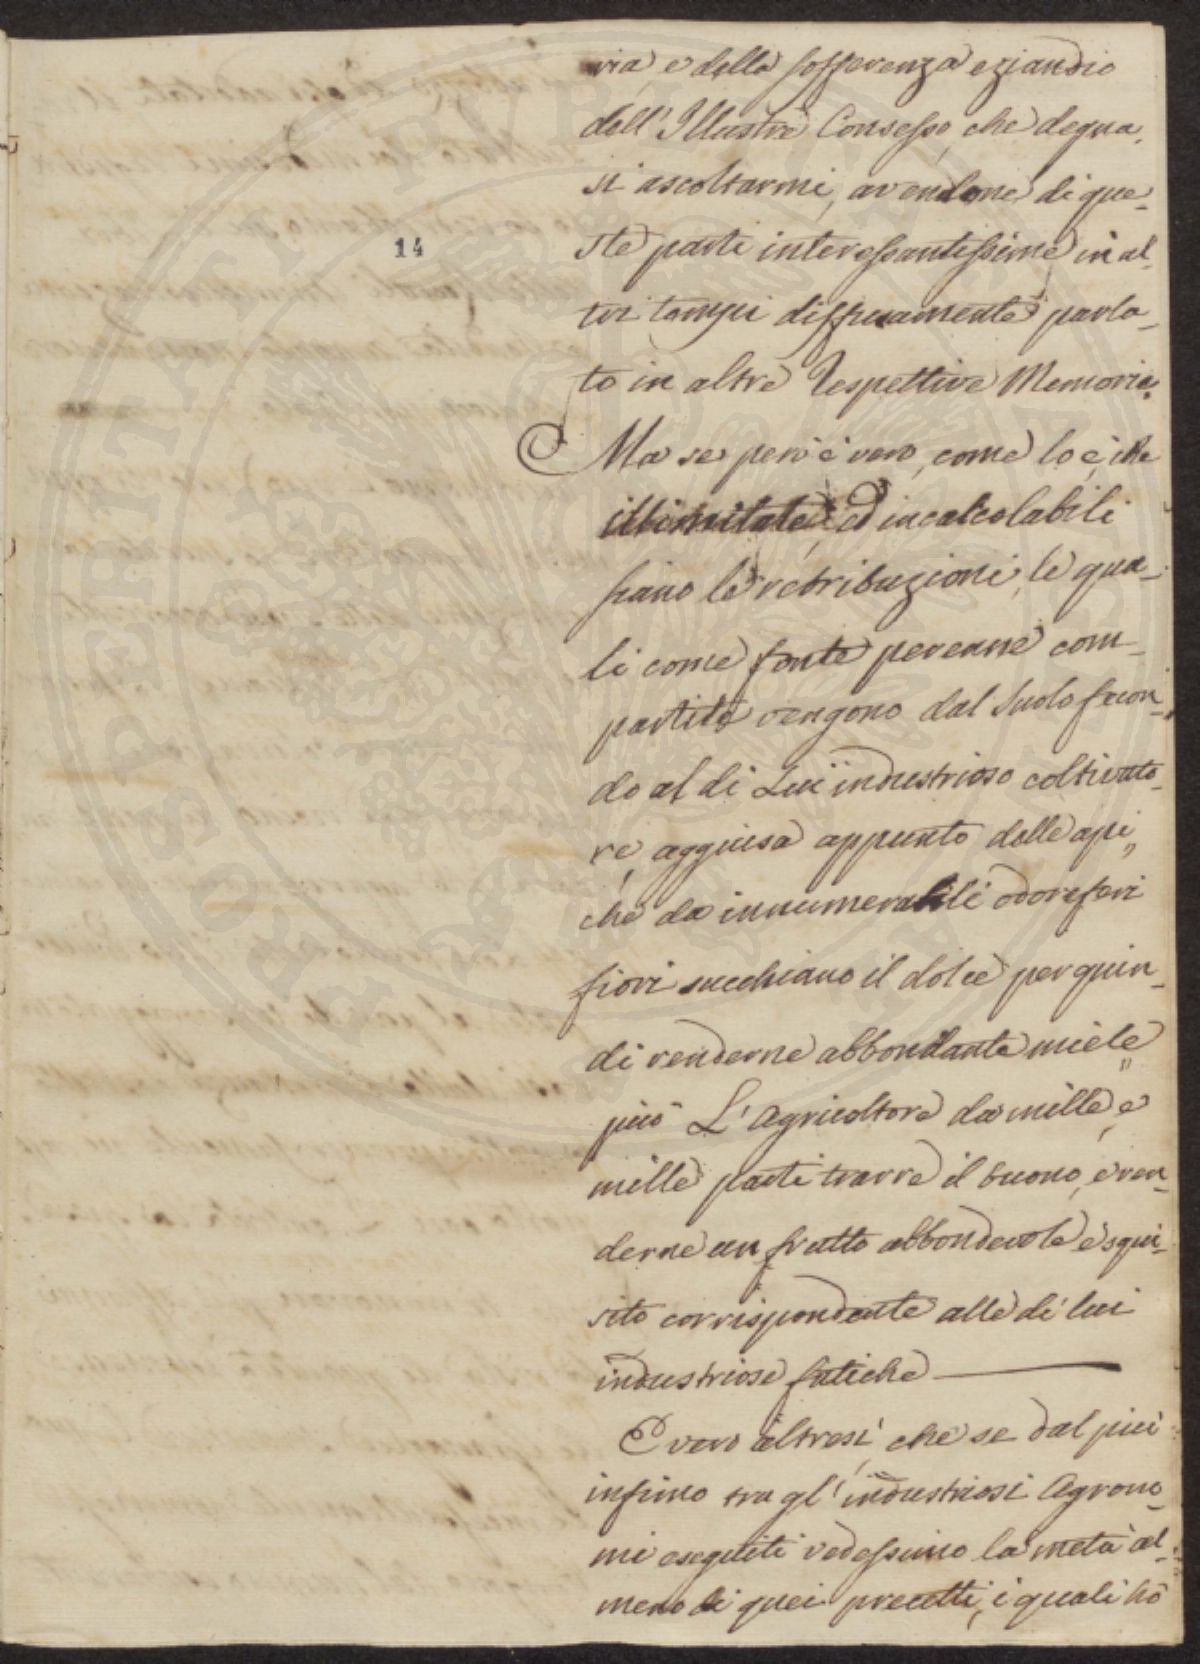 ria, e della sofferenza eziandio
dell'Illustre Consesso, che degna
si ascoltarmi, avendone di que-
ste parti interessantissime in al-
tri tempi diffusamente parla-
to in altre respettive Memorie.
14
Ma se però è vero, come lo è, che
illimitate, ed incalcolabili
siano le retribuzioni, le qua-
li come fonte perenne com-
partite vengono dal Suolo fecon-
do al di Lui industrioso coltivato-
re, agguisa appunto delle api,
che da innumerabili odoriferi
fiori succhiano il dolce per quin-
di renderne abbondante miele
può L'Agricoltore da mille, e
mille parti trarre il buono, e ren-
derne un frutto abbondevole e squi-
sito corrispondente alle di lui
industriose fatiche
E vero altresì, che se dal più
infimo tra gl'industriosi Agrono-
mi eseguiti vedessimo la metà al-
meno di quei precetti, i quali hò